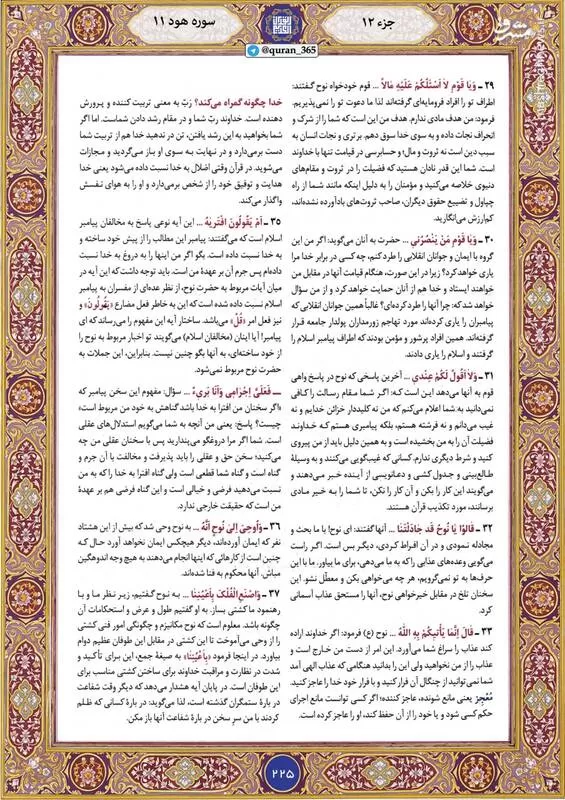 جزء ۱۲
سوره هود ۱۱
مشرق
@quran_365
۲۹ ـ وَیَا قَوْمِ لاَ اَسْئَلُکُمْ عَلَیْهِ مَالاً ... قوم خودخواه نوح گفتند:
اطراف تو را افراد فرومایه‌ای گرفته‌اند لذا ما دعوت تو را نمی‌پذیریم.
فرمود: من هدف مادی ندارم. هدف من این است که شما را از شرک و
انحراف نجات داده و به سوی خدا سوق دهم. برتری و نجات انسان به
سبب دین است نه ثروت و مال؛ و حسابرسی در قیامت تنها با خداوند
است. شما این قدر نادان هستید که فضیلت را در ثروت و مقام‌های
دنیوی خلاصه می‌کنید و مؤمنان را به دلیل اینکه مانند شما از راه
چپاول و تضییع حقوق دیگران، صاحب ثروت‌های بادآورده نشده‌اند،
کم‌ارزش می‌انگارید.
۳۰ ـ وَیَا قَوْمِ مَنْ یَنْصُرُنِی ... حضرت به آنان می‌گوید: اگر من این
گروه با ایمان و جوانان انقلابی را طرد کنم، چه کسی در برابر خدا مرا
یاری خواهد کرد؟ زیرا در این صورت، هنگام قیامت آنها در مقابل من
خواهند ایستاد و خدا هم از آنان حمایت خواهد کرد و از من سؤال
خواهد شد که: چرا آنها را طرد کرده‌ای؟ غالباً همین جوانان انقلابی که
پیامبران را یاری کرده‌اند مورد تهاجم زورمداران پولدار جامعه قرار
گرفته‌اند. همین افراد پرشور و مؤمن بودند که اطراف پیامبر اسلام را
گرفتند و اسلام را یاری دادند.
۳۱ ـ وَلاَ اَقُولُ لَکُمْ عِنْدِی ... آخرین پاسخی که نوح در پاسخ واهی
قوم به آنها می‌دهد این است که: اگر شما مقام رسالت را کافی
نمی‌دانید به شما اعلام می‌کنم که من نه کلیددار خزائن خدایم و نه
غیب می‌دانم و نه فرشته هستم، بلکه پیامبری هستم که خداوند
فضیلت آن را به من بخشیده است و به همین دلیل باید از من پیروی
کنید و شرط دیگری ندارم. کسانی که غیب‌گویی می‌کنند و به وسیلهٔ
طالع‌بینی و جدول‌کشی و دعانویسی از آینده خبر می‌دهند و
می‌گویند این کار را بکن و آن کار را نکن، تا شما را به خیر مادی
برسانند، مورد تکذیب قرآن هستند.
۳۲ ـ قَالُوا یَا نُوحُ قَد جَادَلْتَنَا ... آنها گفتند: ای نوح! با ما بحث و
مجادله نمودی و در آن افراط کردی، دیگر بس است. اگر راست
می‌گویی وعده‌های عذابی را که به ما می‌دهی، برای ما بیاور. ما با این
حرف‌ها به تو نمی‌گرویم، هر چه می‌خواهی بکن و معطّل نشو. این
سخنان تلخ در مقابل خیرخواهی نوح، آنها را مستحق عذاب آسمانی
کرد.
۳۳ ـ قَالَ اِنَّمَا یَأْتِیکُمْ بِهِ اللّٰهُ ... نوح (ع) فرمود: اگر خداوند اراده
کند عذاب را سراغ شما می‌آورد. این امر از دست من خارج است و
عذاب را از من نخواهید ولی این را بدانید هنگامی که عذاب الهی آمد
شما نمی‌توانید از چنگال آن فرار کنید و با فرار خود خدا را عاجز کنید.
مُعْجِز یعنی مانع شونده، عاجز کننده؛ اگر کسی توانست مانع اجرای
حکم کسی شود و یا خود را از آن حفظ کند، او را عاجز کرده است.
خدا چگونه گمراه می‌کند؟ رَبّ به معنی تربیت کننده و پرورش
دهنده است. خداوند ربّ شما و در مقام رشد دادن شماست. اما اگر
شما بخواهید به این رشد یافتن، تن در ندهید خدا هم از تربیت شما
دست برمی‌دارد و در نهایت به سوی او باز می‌گردید و مجازات
می‌شوید. در قرآن وقتی اضلال به خدا نسبت داده می‌شود یعنی خدا
هدایت و توفیق خود را از شخص برمی‌دارد و او را به هوای نفسش
واگذار می‌کند.
۳۵ ـ اَمْ یَقُولُونَ افْتَرٰیهُ ... این آیه نوعی پاسخ به مخالفان پیامبر
اسلام است که می‌گفتند: پیامبر این مطالب را از پیش خود ساخته و
به خدا نسبت داده است. بگو اگر من اینها را به دروغ به خدا نسبت
داده‌ام پس جرم آن بر عهدهٔ من است. باید توجه داشت که این آیه در
میان آیات مربوط به حضرت نوح، از نظر عده‌ای از مفسران به پیامبر
اسلام نسبت داده شده است که این به خاطر فعل مضارع «یَقُولُونَ» و
نیز فعل امر «قُلْ» می‌باشد. ساختار آیه این مفهوم را می‌رساند که ای
پیامبر! آیا اینان (مخالفان اسلام) می‌گویند تو اخبار مربوط به نوح را
از خود ساخته‌ای، به آنها بگو چنین نیست. بنابراین، این جملات به
حضرت نوح مربوط نمی‌شود.
ـ فَعَلَیَّ اِجْرَامِی وَاَنَا بَرِیءٌ ... سؤال: مفهوم این سخن پیامبر که
«اگر سخنان من افترا به خدا باشد گناهش به خود من مربوط است»
چیست؟ پاسخ: یعنی من آنچه به شما می‌گویم استدلال‌های عقلی
است. شما اگر مرا دروغگو می‌پندارید پس با سخنان عقلی من چه
می‌کنید؛ سخن حق و عقلی را باید پذیرفت و مخالفت با آن جرم و
گناه است و گناه شما قطعی است ولی گناه افترا به خدا را که به من
نسبت می‌دهید فرضی و خیالی است و این گناه فرضی هم بر عهدهٔ
من است که حقیقت خارجی ندارد.
۳۶ ـ وَاُوحِیَ اِلیٰ نُوحٍ اَنَّهُ ... به نوح وحی شد که بیش از این هشتاد
نفر که ایمان آورده‌اند، دیگر هیچکس ایمان نخواهد آورد حال که
چنین است از کارهائی که اینها انجام می‌دهند به هیچ وجه اندوهگین
مباش. آنها محکوم به فنا شده‌اند.
۳۷ ـ وَاصْنَعِ الْفُلْکَ بِاَعْیُنِنَا ... به نوح گفتیم، زیر نظر ما و با
رهنمود ما کشتی بساز. به او گفتیم طول و عرض و استحکامات آن
چگونه باشد. معلوم است که نوح مکانیزم و چگونگی امور فنی کشتی
را از وحی می‌آموخت تا این کشتی در مقابل این طوفان عظیم دوام
بیاورد. در اینجا فرمود «بِاَعْیُنِنَا» به صیغهٔ جمع، این برای تأکید و
شدت در نظارت و مراقبت خداوند برای ساختن کشتی مناسب برای
این طوفان است. در پایان آیه هشدار می‌دهد که دیگر وقت شفاعت
در بارهٔ ستمگران گذشته است، لذا می‌گوید: در بارهٔ کسانی که ظلم
کردند با من سرِ سخن در بارهٔ شفاعت آنها باز مکن.
۲۲۵